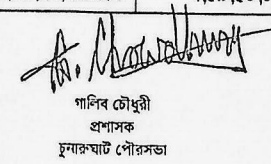 গালিব চৌধুরী
প্রশাসক
চুনারুঘাট পৌরসভা